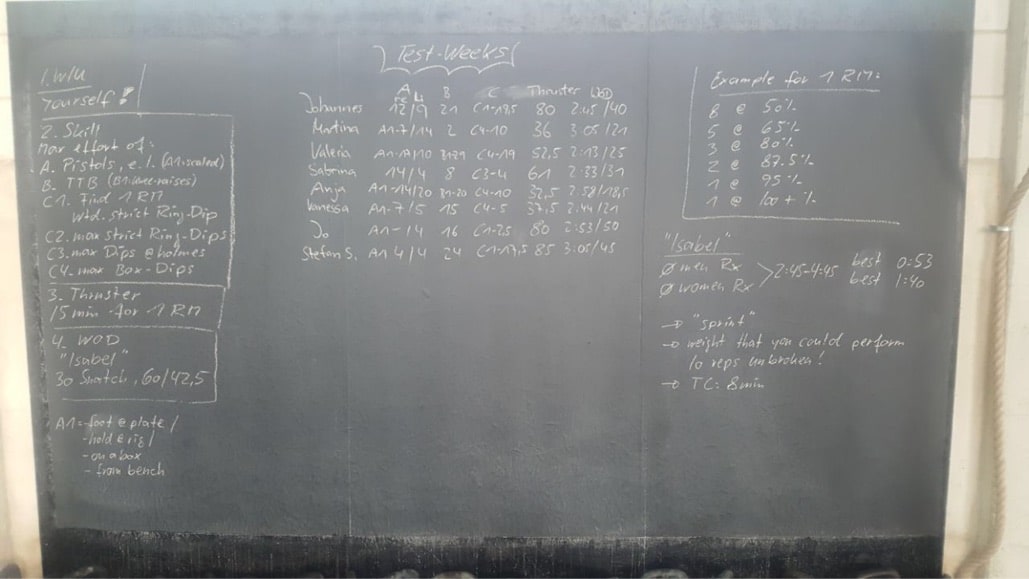 1. W/U
Yourself!
2. Skill
Max effort of:
A. Pistols, e.l. (A1: scaled)
B. TTB (B1: knee-raises)
C1. Find 1 RM
wtd. strict Ring-Dip
C2. max strict Ring-Dips
C3. max Dips @ holmes
C4. max Box-Dips
3. Thruster
15 min for 1 RM
4. WOD
"Isabel"
30 Snatch, 60/42,5
A1: -foot @ plate /
-hold @ rig /
-on a box
- from bench
Test-Weeks
A B C Thruster WOD
Johannes 12/9 21 C1-18,5 80 2:45/40
Martina A1-7/14 2 C4-10 36 3:05/21
Valeria C4-19 52,5 2:13/25
Sabrina 14/4 8 C3-4 61 2:33/31
Anja A1-14/20 B1-20 C4-10 32,5 2:58/18,5
Vanessa A1-7/5 15 C4-5 37,5 2:44/21
Jo A1-14 16 C1-25 80 2:53/50
Stefan S. A1 4/4 24 C1-17,5 85 3:05/45
Example for 1 RM:
8 @ 50%
5 @ 65%
3 @ 80%
2 @ 87.5%
1 @ 95%
1 @ 100+%
"Isabel"
Ø men Rx > 2:45-4:45 best 0:53
Ø women Rx best 1:40
→ "sprint"
→ weight that you could perform
10 reps unbroken!
→ TC: 8min